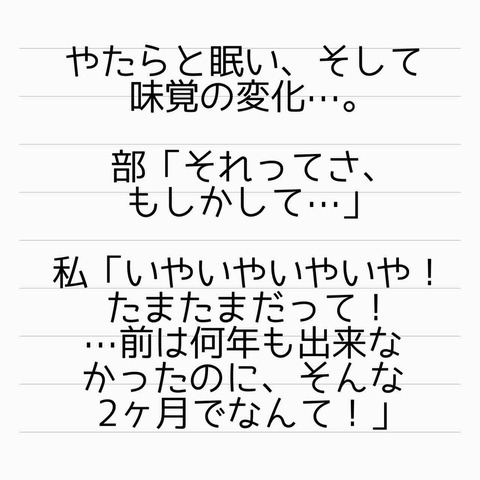 やたらと眠い、そして
味覚の変化…。
部「それってさ、
もしかして…」
私「いやいやいやいや！
たまたまだって！
…前は何年も出来な
かったのに、そんな
2ヶ月でなんて！」